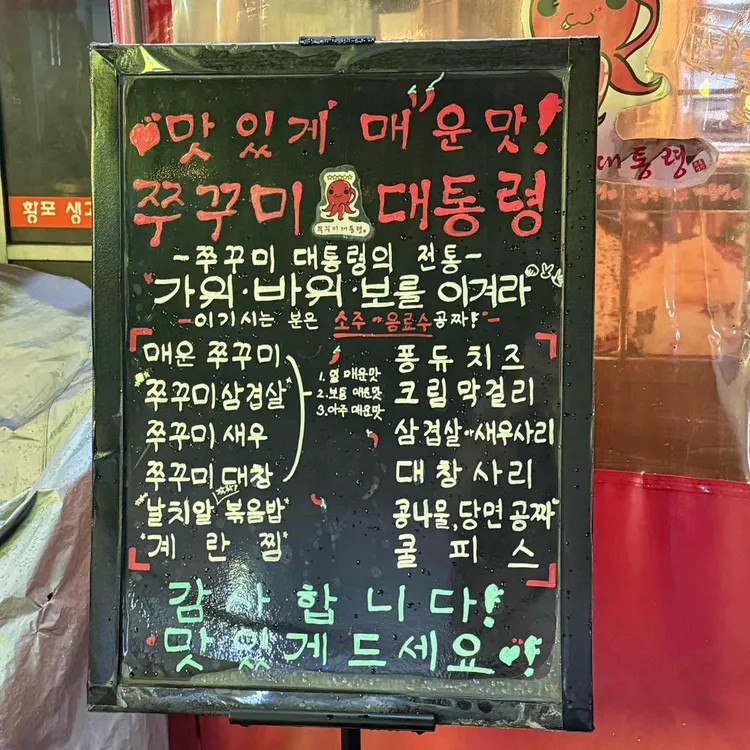 대통령
황포 생고
맛있게 매운맛!
쭈꾸미 대통령
쭈꾸미대통령
-쭈꾸미 대통령의 전통-
가위·바위·보를 이겨라
-이기시는 분은 소주·음료수공짜!-
매운 쭈꾸미
쭈꾸미삼겹살
쭈꾸미 새우
쭈꾸미 대창
날치알 볶음밥
계란찜
1. 덜 매운맛
2. 보통 매운맛
3. 아주 매운맛
퐁듀치즈
크림막걸리
삼겹살·새우사리
대창사리
콩나물,당면공짜
쿨피스
감사합니다!
맛있게드세요!